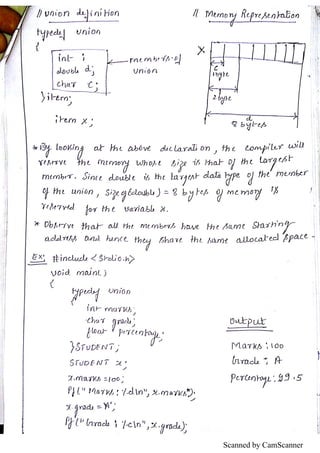 // union definition
// Memory Representation
typedef union
{
int i;
double d;
char c;
members of
union
}item;
item x;
X
c
1 byte
2 byte
d
8 bytes
* By looking at the above declaration, the compiler will
reserve the memory whose size is that of the largest
member. Since double is the largest data type of the member
of the union, Size of (double) = 8 bytes of memory is
reserved for the variable x.
* Observe that all the members have the same Starting
address and hence they share the same allocated space.
Ex: #include <stdio.h>
void main( )
{
typedef union
{
int marks;
char grade;
float percentage;
}STUDENT;
STUDENT x;
x.marks = 100;
Pf("Marks: %d\n", x.marks);
x.grade = 'A';
Pf("Grade: %c\n", x.grade);
Output
Marks: 100
Grade: A
Percentage: 99.5
Scanned by CamScanner